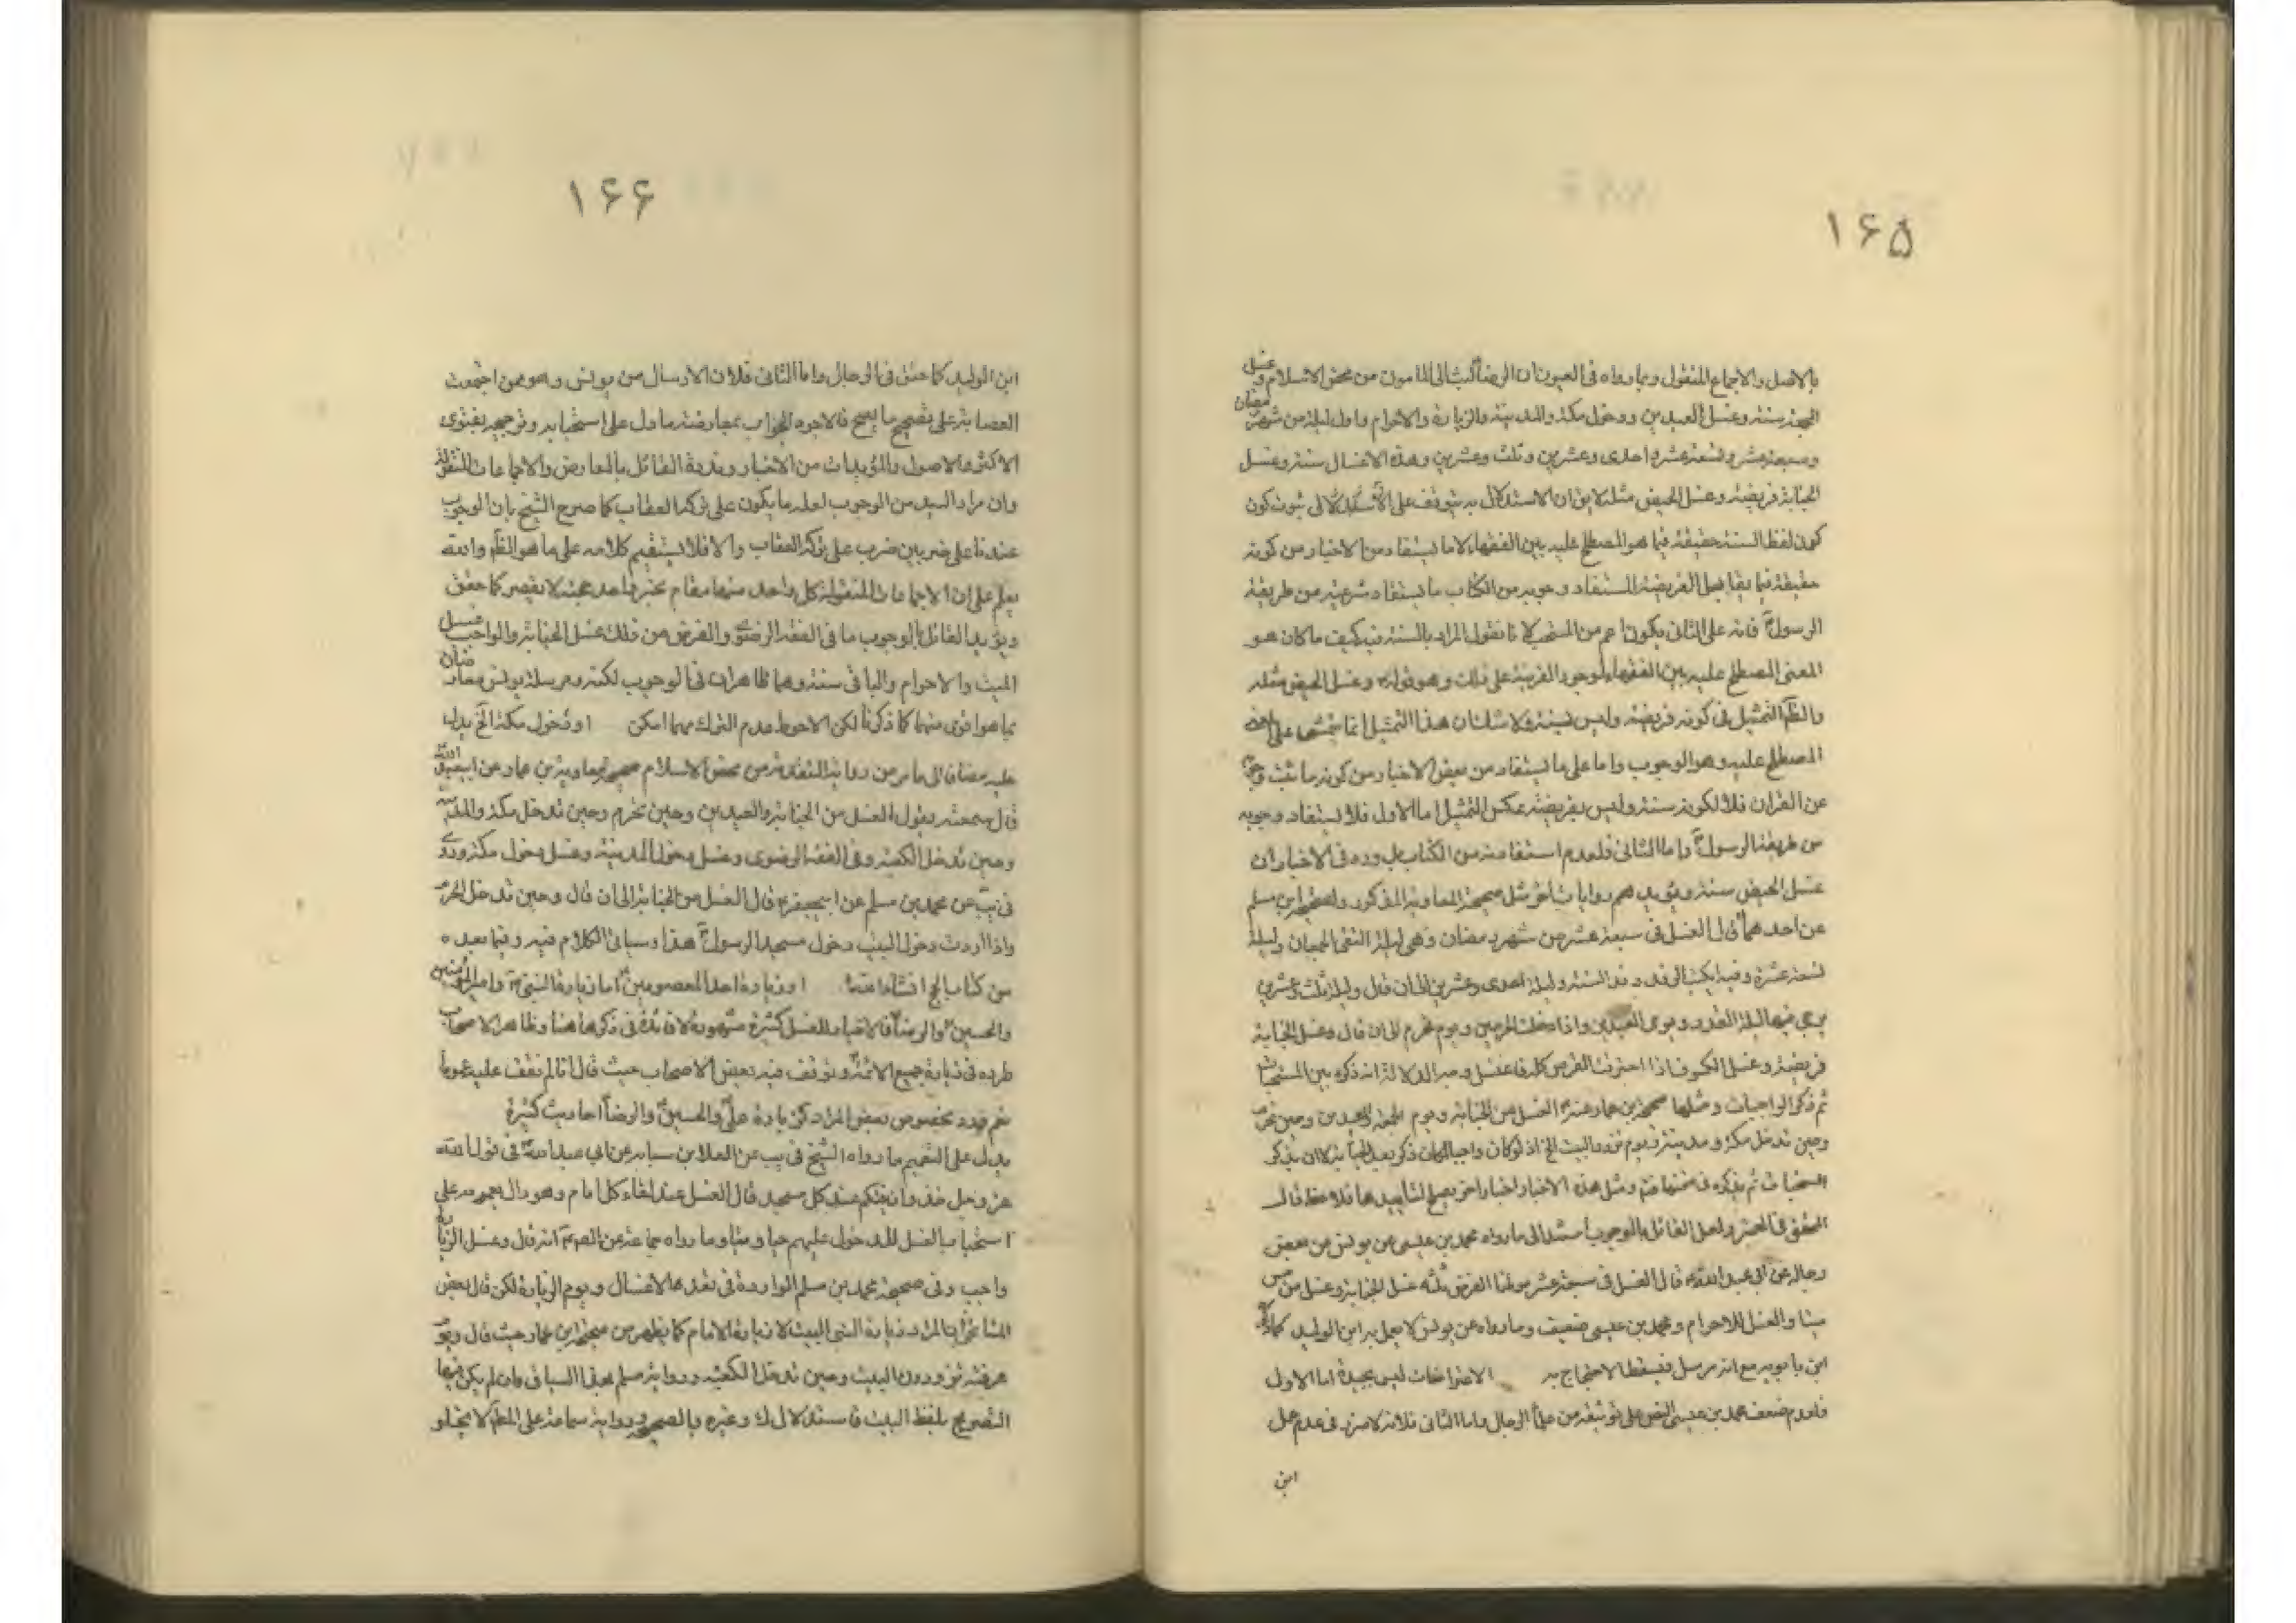 ۱۶۵
بالاصل والاجماع المنقول وبما رواه فى العيون ان الرضا كتب الى المامون من محض الاسلام وغسل
الجمعة سنة وغسل العيدين ودخول مكة والمدينة والزيارة والاحرام واول ليلة من شهر رمضان
وسبعة عشر وتسعة عشر واحدى وعشرين وثلث وعشرين وهذه الاغسال سنة وغسل
الجنابة فريضة وغسل الحيض مثله لا يق ان الاستدلال به يتوقف على ثبوت كون
كون لفظ السنة حقيقة فيما هو المصطلح عليه بين الفقهاء لا ما يستفاد من الاخبار من كونه
حقيقة فيما يقابل الفريضة المستفاد وجوبه من الكتاب ما يستفاد شرعيته من طريقة
الرسول فانه على الثانى يكون اعم من المستحب لانا نقول المراد بالسنة فيه كيف ما كان هو
المعنى المصطلح عليه بين الفقهاء لوجود القرينة على ذلك وهو قوله وغسل الحيض مثله
والظ التمثيل فى كونه فريضة وليس بسنة ولا شك ان هذا التمثيل انما يتمشى على
المصطلح عليه وهو الوجوب واما على ما يستفاد من بعض الاخبار من كونه ما ثبت
عن القران فلا لكونه سنة وليس بفريضة عكس التمثيل اما الاول فلا يستفاد وجوبه
من طريقة الرسول واما الثانى فلعدم استفادته من الكتاب بل وده فى الاخبار ان
غسل الحيض سنة ويؤيده روايات اخر مثل صحيحة المعاوية المذكور وصحيحة ابن مسلم
عن احدهما قال الغسل فى سبعة عشر من شهر رمضان وهى ليلة التقى الجمعان وليلة
تسعة عشرة وفيه يكتب الوفد وفد السنة وليلة احدى وعشرين الى ان قال وليلة ثلث وعشرين
يرجى فيها ليلة القدر ويوم العيدين واذا دخلت الحرمين ويوم تحرم الى ان قال وغسل الجنابة
فريضة وغسل الكسوف اذا احترق القرص كله فاغتسل وجه الدلالة انه ذكره بين المستحبات
ثم ذكر الواجبات ومثلها صحيحة بن عمار عنه الغسل من الجنابة ويوم الجمعة والعيدين وحين تحرم
وحين تدخل مكة ومدينة ويوم تزور البيت الخ اذ لو كان واجبا لكان ذكر بعد الجنابة لا ان يذكر
المستحبات ثم يذكره فى ضمنها ومثل هذه الاخبار اخبار اخر يصلح لتاييدها فلاحظ قال
المحقق فى المعتبر ولعل القائل بالوجوب استند الى ما رواه محمد بن عيسى عن يونس عن بعض
رجاله عن ابى عبد الله قال الغسل فى سبعة عشر موطنا الفرض ثلثة غسل الجنابة وغسل من مس
ميتا والغسل للاحرام ومحمد بن عيسى ضعيف وما رواه عن يونس لا يعمل به ابن الوليد كما ذكره
ابن بابويه مع انه مرسل فيسقط الاحتجاج به الاعتراضات ليس بجيدة اما الاول
فلعدم ضعف محمد بن عيسى النص على توثيقه من علماء الرجال واما الثانى فلانه فى عدم عمل
ابن
۱۶۶
ابن الوليد كما حقق فى الرجال واما الثانى فلان الارسال من يونس وهو ممن اجتمعت
العصابة على تصحيح ما يصح فالاجود الجواب بمعارضته ما دل على استحبابه وترجيحه بفتوى
الاكثر والاصول والمؤيدات من الاخبار وندرة القائل بالمعارض والاجماعات المنقولة
وان مراد السيد من الوجوب لعله ما يكون على تركه العقاب كما صرح الشيخ بان الوجوب
عندنا على ضربين ضرب على تركه العقاب والا فلا يستقيم كلامه على ما هو الظ والله
يعلم على ان الاجماعات المنقولة كل واحد منها مقام بخبر واحد حجيته لا يقصر كما حقق
ويؤيد القائل بالوجوب ما فى الفقه الرضوى والفرض من ذلك غسل الجنابة والواجب غسل
الميت والاحرام والباقى سنة وهما ظاهران فى الوجوب لكنه ومرسلة يونس معارضان
بما هو اقوى منهما كما ذكرنا لكن الاحوط عدم الترك مهما امكن او دخول مكة الخ يدل
عليه مضافا الى ما مر من رواية المتقدمة من محض الاسلام صحيحة معاوية بن عمار عن ابى عبد الله
قال سمعته يقول الغسل من الجنابة والعيدين وحين تحرم وحين تدخل مكة والمدينة
وحين تدخل الكعبة وفى الفقه الرضوى وغسل دخول المدينة وغسل دخول مكة وروى
فى يب عن محمد بن مسلم عن ابى جعفر قال الغسل من الجنابة الى ان قال وحين تدخل الحرم
واذا اردت دخول البيت دخول مسجد الرسول هذا وسياتى الكلام فيه وفيما بعده
من كتاب الحج انشاء الله او زيارة احد المعصومين اما زيارة النبى وامير المؤمنين
والحسين والرضا فالاخبار للغسل كثيرة مشهورة لا فائدة فى ذكرها هنا وظاهر الاصحاب
طرده فى زيارة جميع الائمة وتوقف فيه بعض الاصحاب حيث قال انا لم نقف عليه عموما
نعم ورد بخصوص بعض المراد كزيادة على والحسين والرضا احاديث كثيرة
يدل على التعميم ما رواه الشيخ فى يب عن العلا بن سيابه عن ابى عبد الله فى قول الله
عز وجل خذوا زينتكم عند كل مسجد قال الغسل عند لقاء كل امام وهو دال بعمومه على
استحباب الغسل للدخول عليهم حيا وميتا وما رواه سماعة عن الص انه قال وغسل الزيارة
واجب وفى صحيحة محمد بن مسلم الواردة فى تعداد الاغسال ويوم الزيارة لكن قال بعض
المشايخ ان المراد زيارة البيت لا زيارة الامام كما يظهر من صحيحة ابن عمار حيث قال ويوم
عرفة تزور البيت وحين تدخل الكعبة ورواية مسلم السياق وان لم يكن فيها
التصريح بلفظ البيت فاستدلال لك وغيره بالصحيحة ورواية سماعة على المط لا يخلو